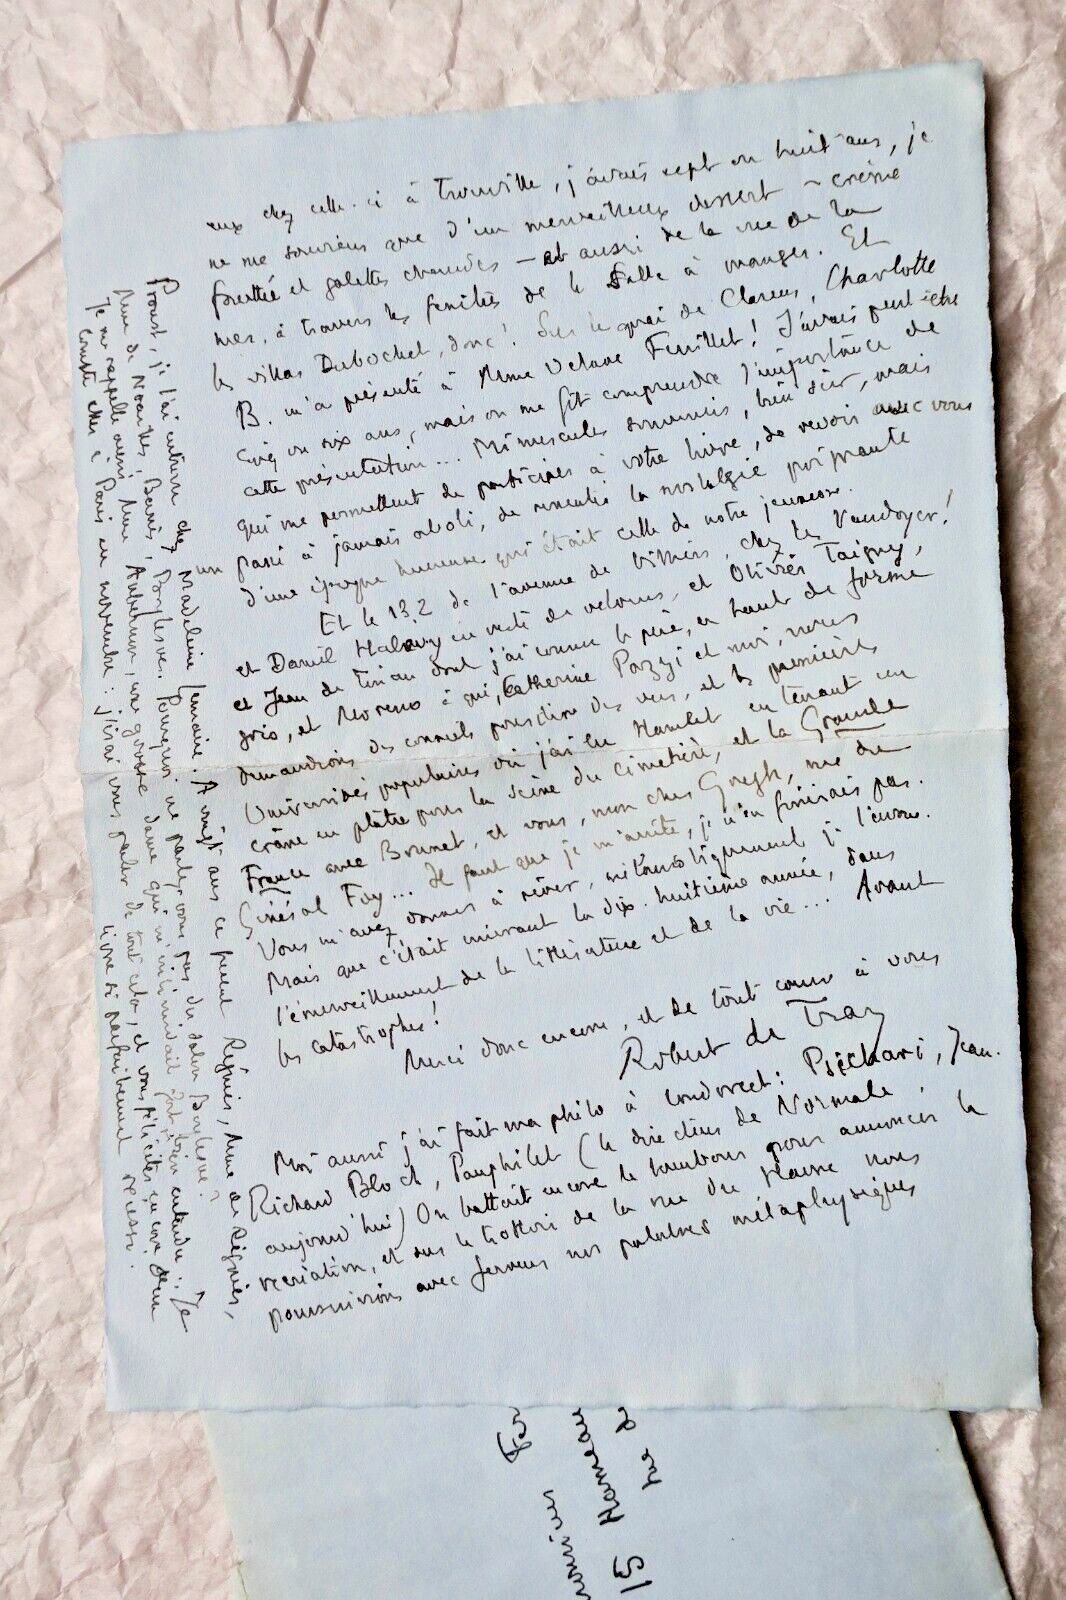 eux chez celle-ci à Trouville, j'avais sept ou huit ans, je
ne me souviens que d'un merveilleux dessert – crème
fouettée et galettes chaudes – et aussi de la vue de la
mer, à travers les fenêtres de la salle à manger. Et
les villas Dubochet, donc! Sur le quai de Clarens, Charlotte
B. m'a présenté à Mme Octave Feuillet! J'avais peut-être
cinq ou six ans, mais on me fit comprendre l'importance de
cette présentation... Minuscules souvenirs, bien sûr, mais
qui me permettent de participer à votre livre, de revoir avec vous
un passé à jamais aboli, de ressentir la nostalgie poignante
d'une époque heureuse qui était celle de notre jeunesse.
Et le 132 de l'avenue de Villiers, chez les Vaudoyer!
et Daniel Halévy en veste de velours, et Olivier Taigny,
et Jean de Tinan dont j'ai connu le père, en haut de forme
gris, et Moreno à qui, Catherine Pozzi et moi, nous
demandions des conseils pour dire des vers, et les premières
Universités populaires où j'ai lu Hamlet en tenant un
crâne en plâtre pour la scène du cimetière, et la Grande
France avec Brunet, et vous, mon cher Gregh, rue du
Général Foy... Il faut que je m'arrête, je n'en finirais pas.
Vous m'avez donné à rêver, mélancoliquement je l'avoue.
Mais que c'était enivrant la dix-huitième année, dans
l'émerveillement de la littérature et de la vie... Avant
les catastrophes!
Merci donc encore, et de tout coeur à vous
Robert de Traz
Moi aussi j'ai fait ma philo à Condorcet: Psichari, Jean-
Richard Bloch, Pauphilet (le directeur de Normale
aujourd'hui) On battait encore le tambour pour annoncer la
récréation, et sur le trottoir de la rue du Havre nous
poursuivions avec ferveur nos palabres métaphysiques
Proust, je l'ai entrevu chez Madeleine Lemaire. A vingt ans ce furent Régnier, Mme de Régnier,
Mme de Noailles, Barrès, Boylesve. Pourquoi ne parlez-vous pas du salon Boylesve?
Je me rappelle aussi Mme Aubernon, une grosse dame qui m'intimidait fort, bien entendu. Je
compte aller à Paris en novembre: j'irai vous parler de tout cela, et vous féliciter encore d'un
livre si parfaitement réussi.
15 Hameau